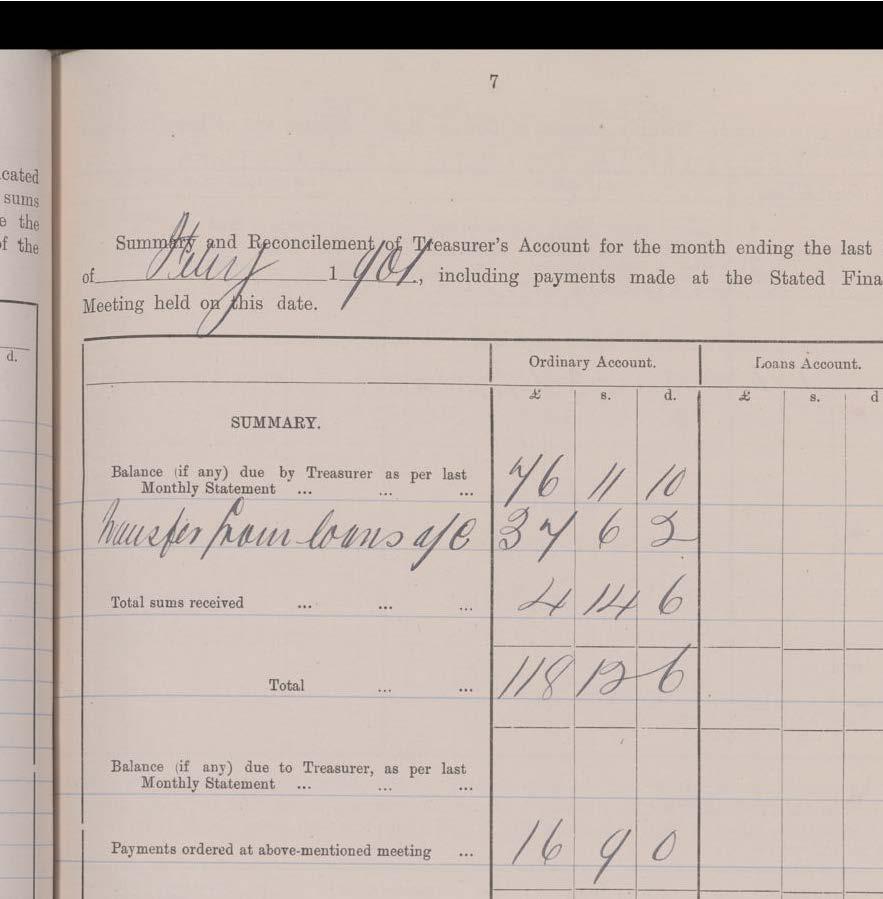 7
cated
sums
e the
f the
d.
Summary and Reconcilement of Treasurer's Account for the month ending the last
of Feby 1901, including payments made at the Stated Fina
Meeting held on this date.
Ordinary Account. Loans Account.
£ s. d. £ s. d
SUMMARY.
Balance (if any) due by Treasurer as per last
Monthly Statement ... ... ... 76 11 10
Transfer from loans a/c 37 6 2
Total sums received ... ... ... 4 14 6
Total ... ... 118 12 6
Balance (if any) due to Treasurer, as per last
Monthly Statement ... ... ...
Payments ordered at above-mentioned meeting ... 16 9 0